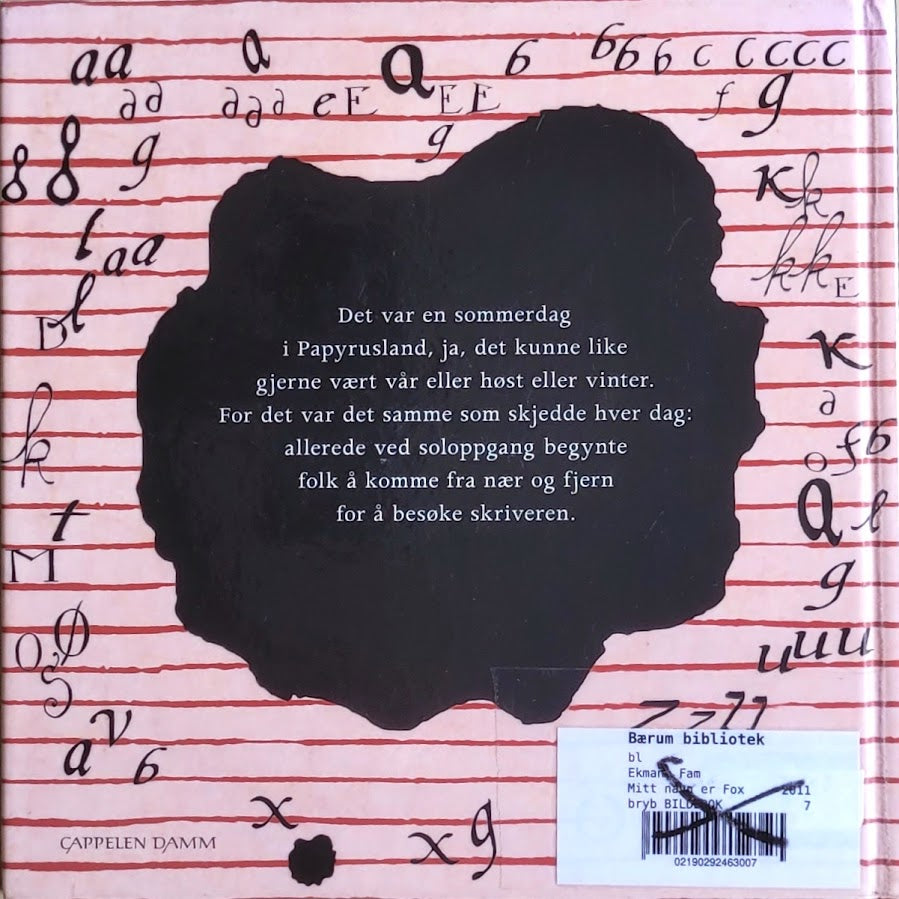 aa a a 6 666 c cccc
aa aaa eE EE f g
8 8 g g
K k
l aa
kk E
D l
Det var en sommerdag
i Papyrusland, ja, det kunne like
gjerne vært vår eller høst eller vinter.
For det var det samme som skjedde hver dag:
allerede ved soloppgang begynte
folk å komme fra nær og fjern
for å besøke skriveren.
K
a
k
f6
t
Å l
M
g
O Ø
uuu
g
a v 6
zzll
x
x g
CAPPELEN DAMM
Bærum bibliotek
bl
Ekman, Fam
Mitt navn er Fox 2011
bryb BILDEBOK 7
02190292463007